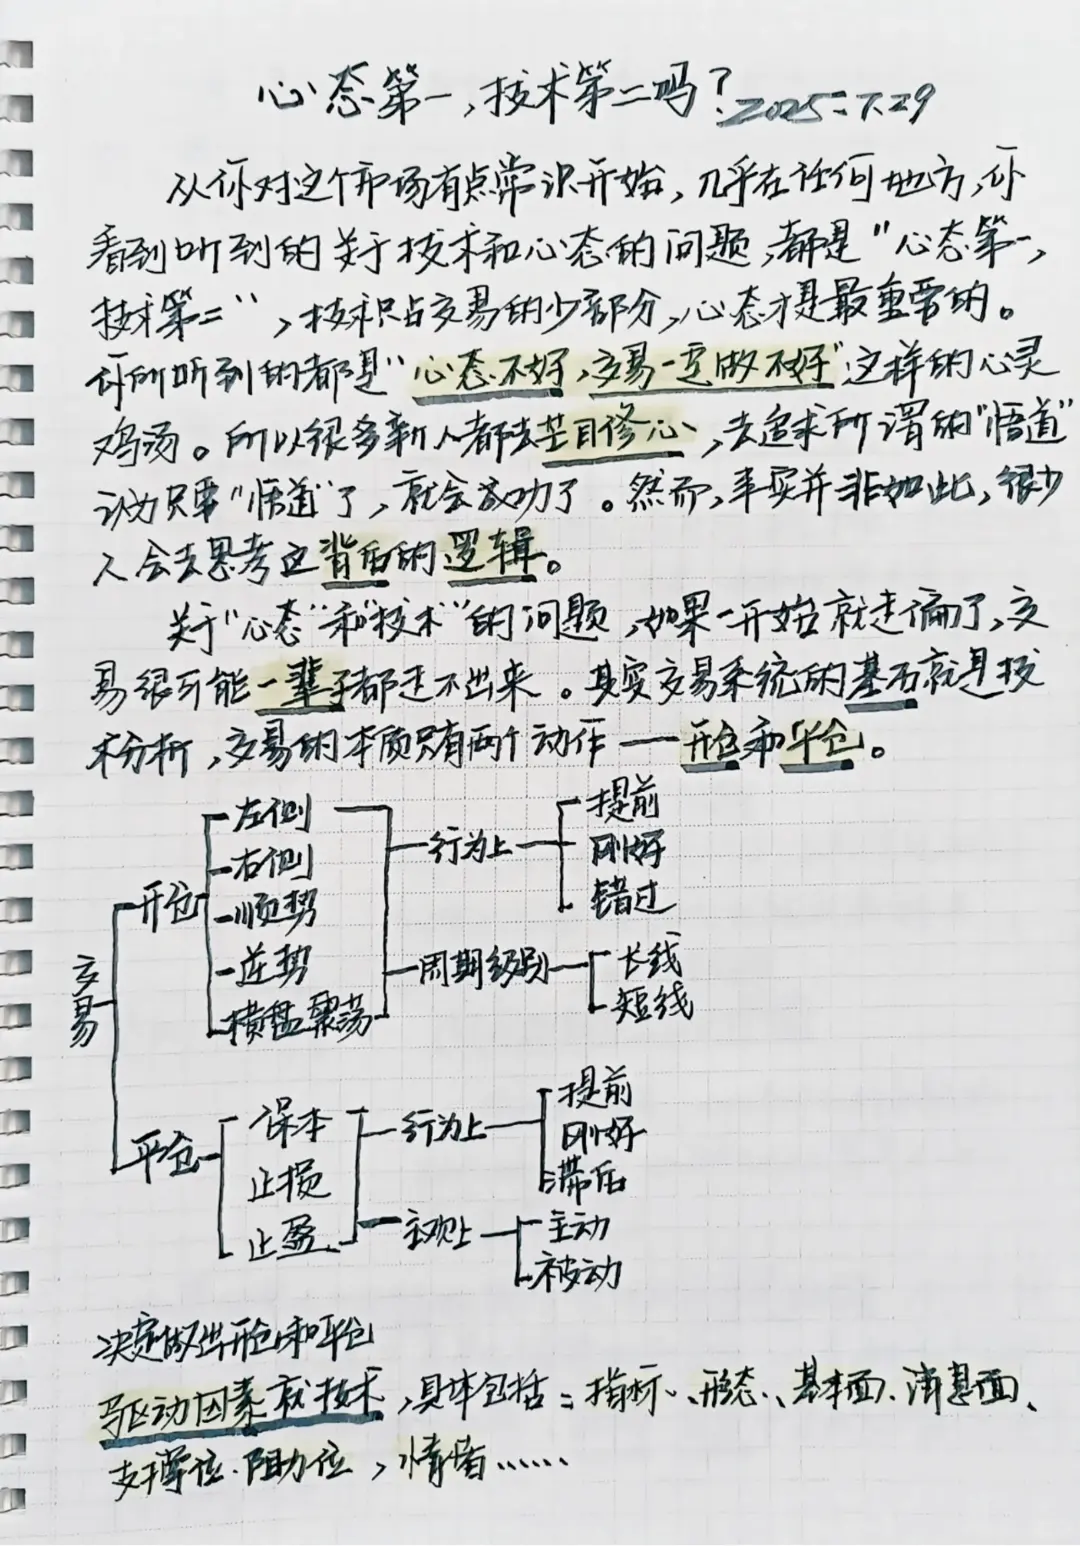 心态第一，技术第二吗？2025.7.29
从你对这个市场有点常识开始，几乎在任何地方，你
看到听到的关于技术和心态的问题，都是"心态第一，
技术第二"，技术只占交易的少部分，心态才是最重要的。
你所听到的都是"心态不好，交易一定做不好"这样的心灵
鸡汤。所以很多新人都去盲目修心，去追求所谓的"悟道"
认为只要"悟道"了，就会成功了。然而，事实并非如此，很少
人会去思考这背后的逻辑。
关于"心态"和"技术"的问题，如果一开始就走偏了，交
易很可能一辈子都走不出来。其实交易系统的基石就是技
术分析，交易的本质只有两个动作——开仓和平仓。
交易
开仓
左侧
右侧
顺势
逆势
横盘震荡
行为上
提前
刚好
错过
周期级别
长线
短线
平仓
保本
止损
止盈
行为上
提前
刚好
滞后
主观上
主动
被动
决定做出开仓和平仓
驱动因素就技术，具体包括：指标、形态、基本面、消息面、
支撑位.阻力位，情绪……